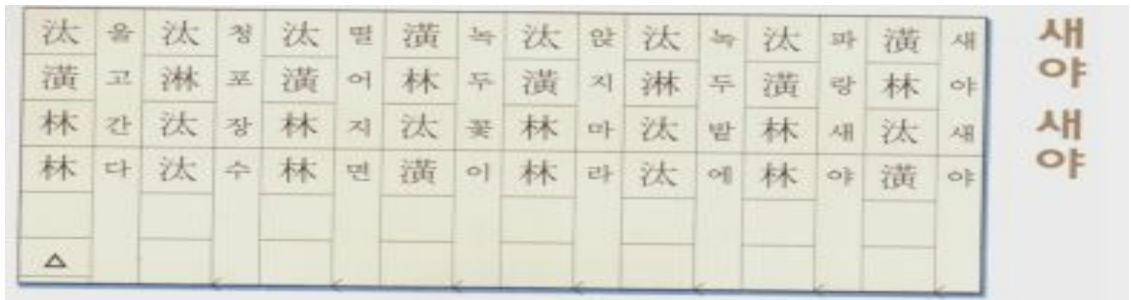 새야 새야
새야새야
潢林汰潢
파랑새야
汰潢林林
녹두밭에
汰淋汰汰
앉지마라
汰潢林林
녹두꽃이
潢林汰潢
떨어지면
汰潢林林
청포장수
汰淋汰汰
울고간다
汰潢林林△